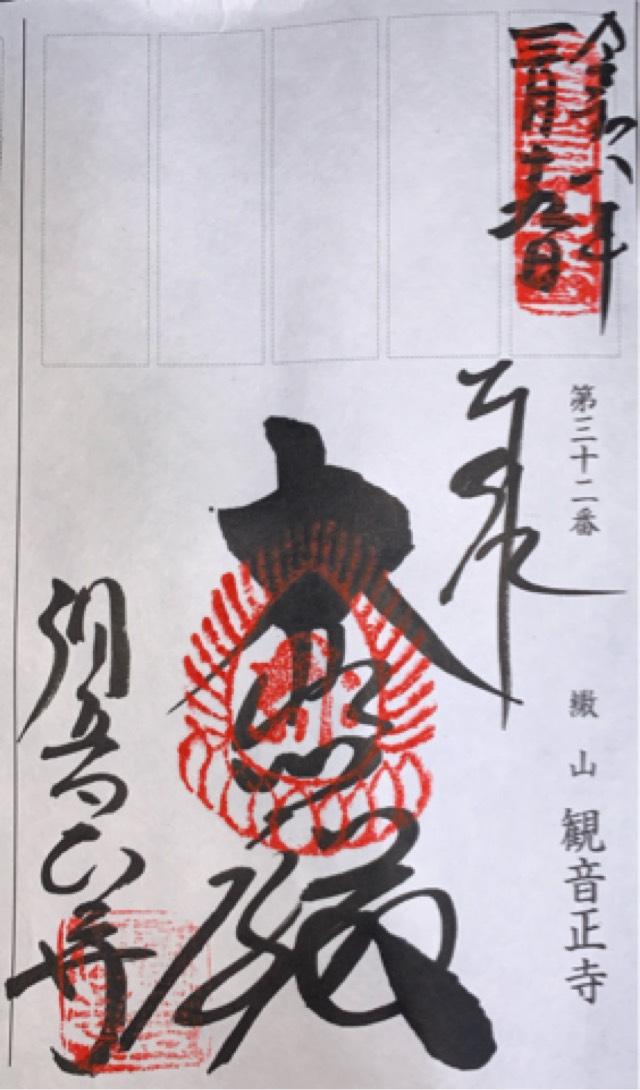 令和六年
三月十九日
第三十二番
繖山 観音正寺
奉拝
大悲殿
観音正寺